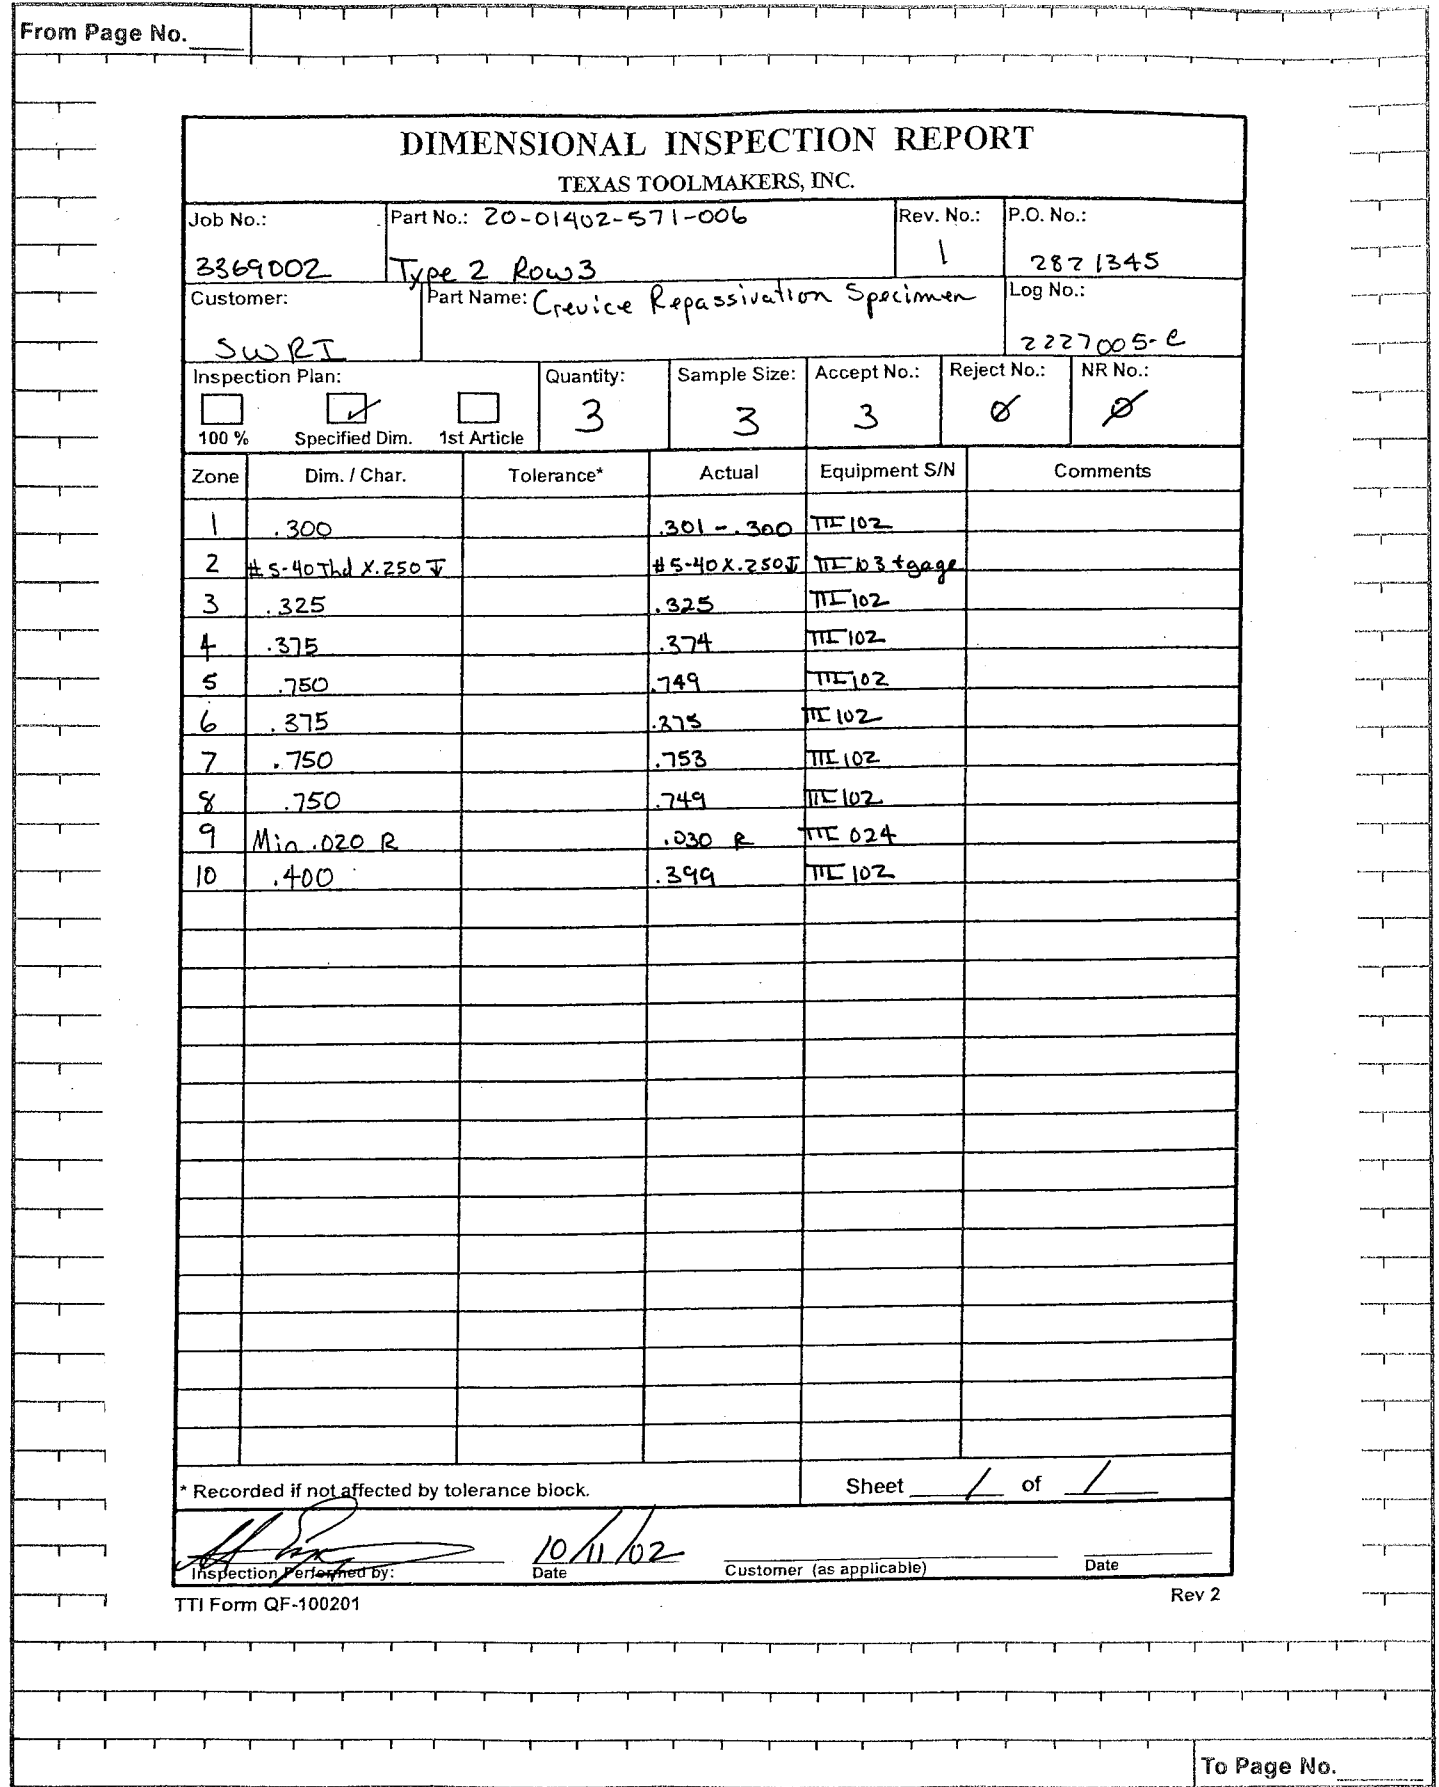 From Page No.
DIMENSIONAL INSPECTION REPORT
TEXAS TOOLMAKERS, INC.
Job No.: Part No.: 20-01402-571-006 Rev. No.: P.O. No.:
3369002 Type 2 Row 3 1 2821345
Customer: Part Name: Crevice Repassivation Specimen Log No.:
SWRI 2227005-C
Inspection Plan: Quantity: Sample Size: Accept No.: Reject No.: NR No.:
✓ 3 3 3 Ø Ø
100 % Specified Dim. 1st Article
Zone Dim. / Char. Tolerance* Actual Equipment S/N Comments
1 .300 .301 - .300 TTI 102
2 #5-40 Thd X .250 ↧ #5-40 X .250 ↧ TTI 103 + gage
3 .325 .325 TTI 102
4 .375 .374 TTI 102
5 .750 .749 TTI 102
6 .375 .375 TTI 102
7 .750 .753 TTI 102
8 .750 .749 TTI 102
9 Min .020 R .030 R TTI 024
10 .400 .399 TTI 102
* Recorded if not affected by tolerance block. Sheet 1 of 1
10/11/02
Inspection Performed by: Date Customer (as applicable) Date
TTI Form QF-100201 Rev 2
To Page No.